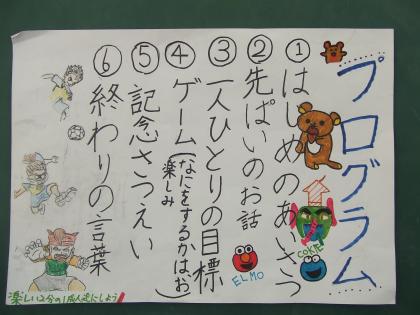 プログラム
①はじめのあいさつ
②先ぱいのお話
③一人ひとりの目標
④ゲーム(なにをするかはお楽しみ)
⑤記念さつえい
⑥終わりの言葉
ELMO
COOKIE
楽しい2分の1成人式にしよう!